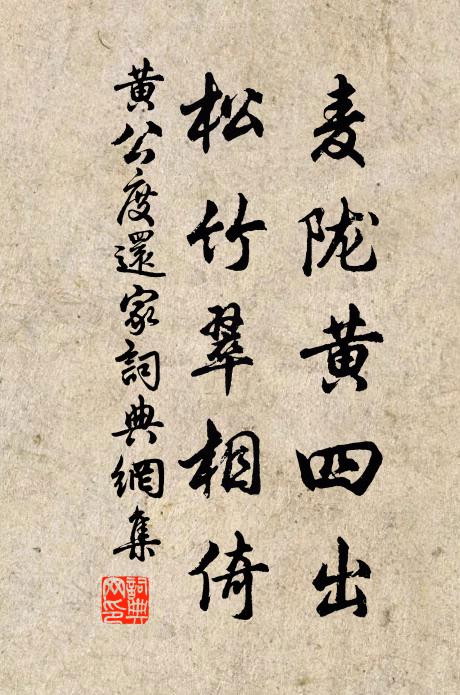 麦陇黄四出
松竹翠相倚
黄公度還家詞典網集
詞典
网印